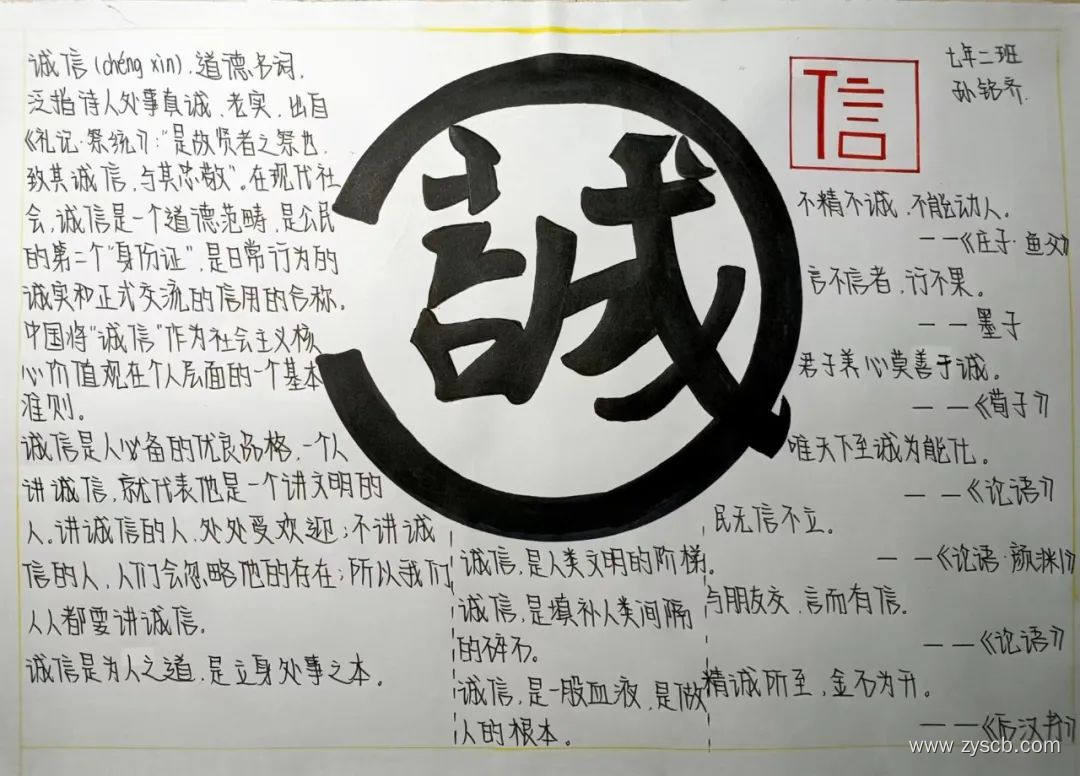 诚信(chéng xìn),道德名词,
泛指待人处事真诚、老实,出自
《礼记·祭统》:“是故贤者之祭也,
致其诚信,与其忠敬”。在现代社
会,诚信是一个道德范畴,是公民
的第二个“身份证”,是日常行为的
诚实和正式交流的信用的合称,
中国将“诚信”作为社会主义核
心价值观在个人层面的一个基本
准则。
诚信是人必备的优良品格,一个人
讲诚信,就代表他是一个讲文明的
人。讲诚信的人,处处受欢迎;不讲诚
信的人,人们会忽略他的存在;所以我们
人人都要讲诚信。
诚信是为人之道,是立身处事之本。
誠
诚信,是人类文明的阶梯。
诚信,是填补人类间隔
的碎石。
诚信,是一股血液,是做
人的根本。
信
七年二班
孙铭齐.
不精不诚,不能动人。
——《庄子·鱼父》
言不信者,行不果。
——墨子
君子养心莫善于诚。
——《荀子》
唯天下至诚为能化。
——《论语》
民无信不立。
——《论语·颜渊》
与朋友交,言而有信。
——《论语》
精诚所至,金石为开。
——《后汉书》
www.zyscb.com